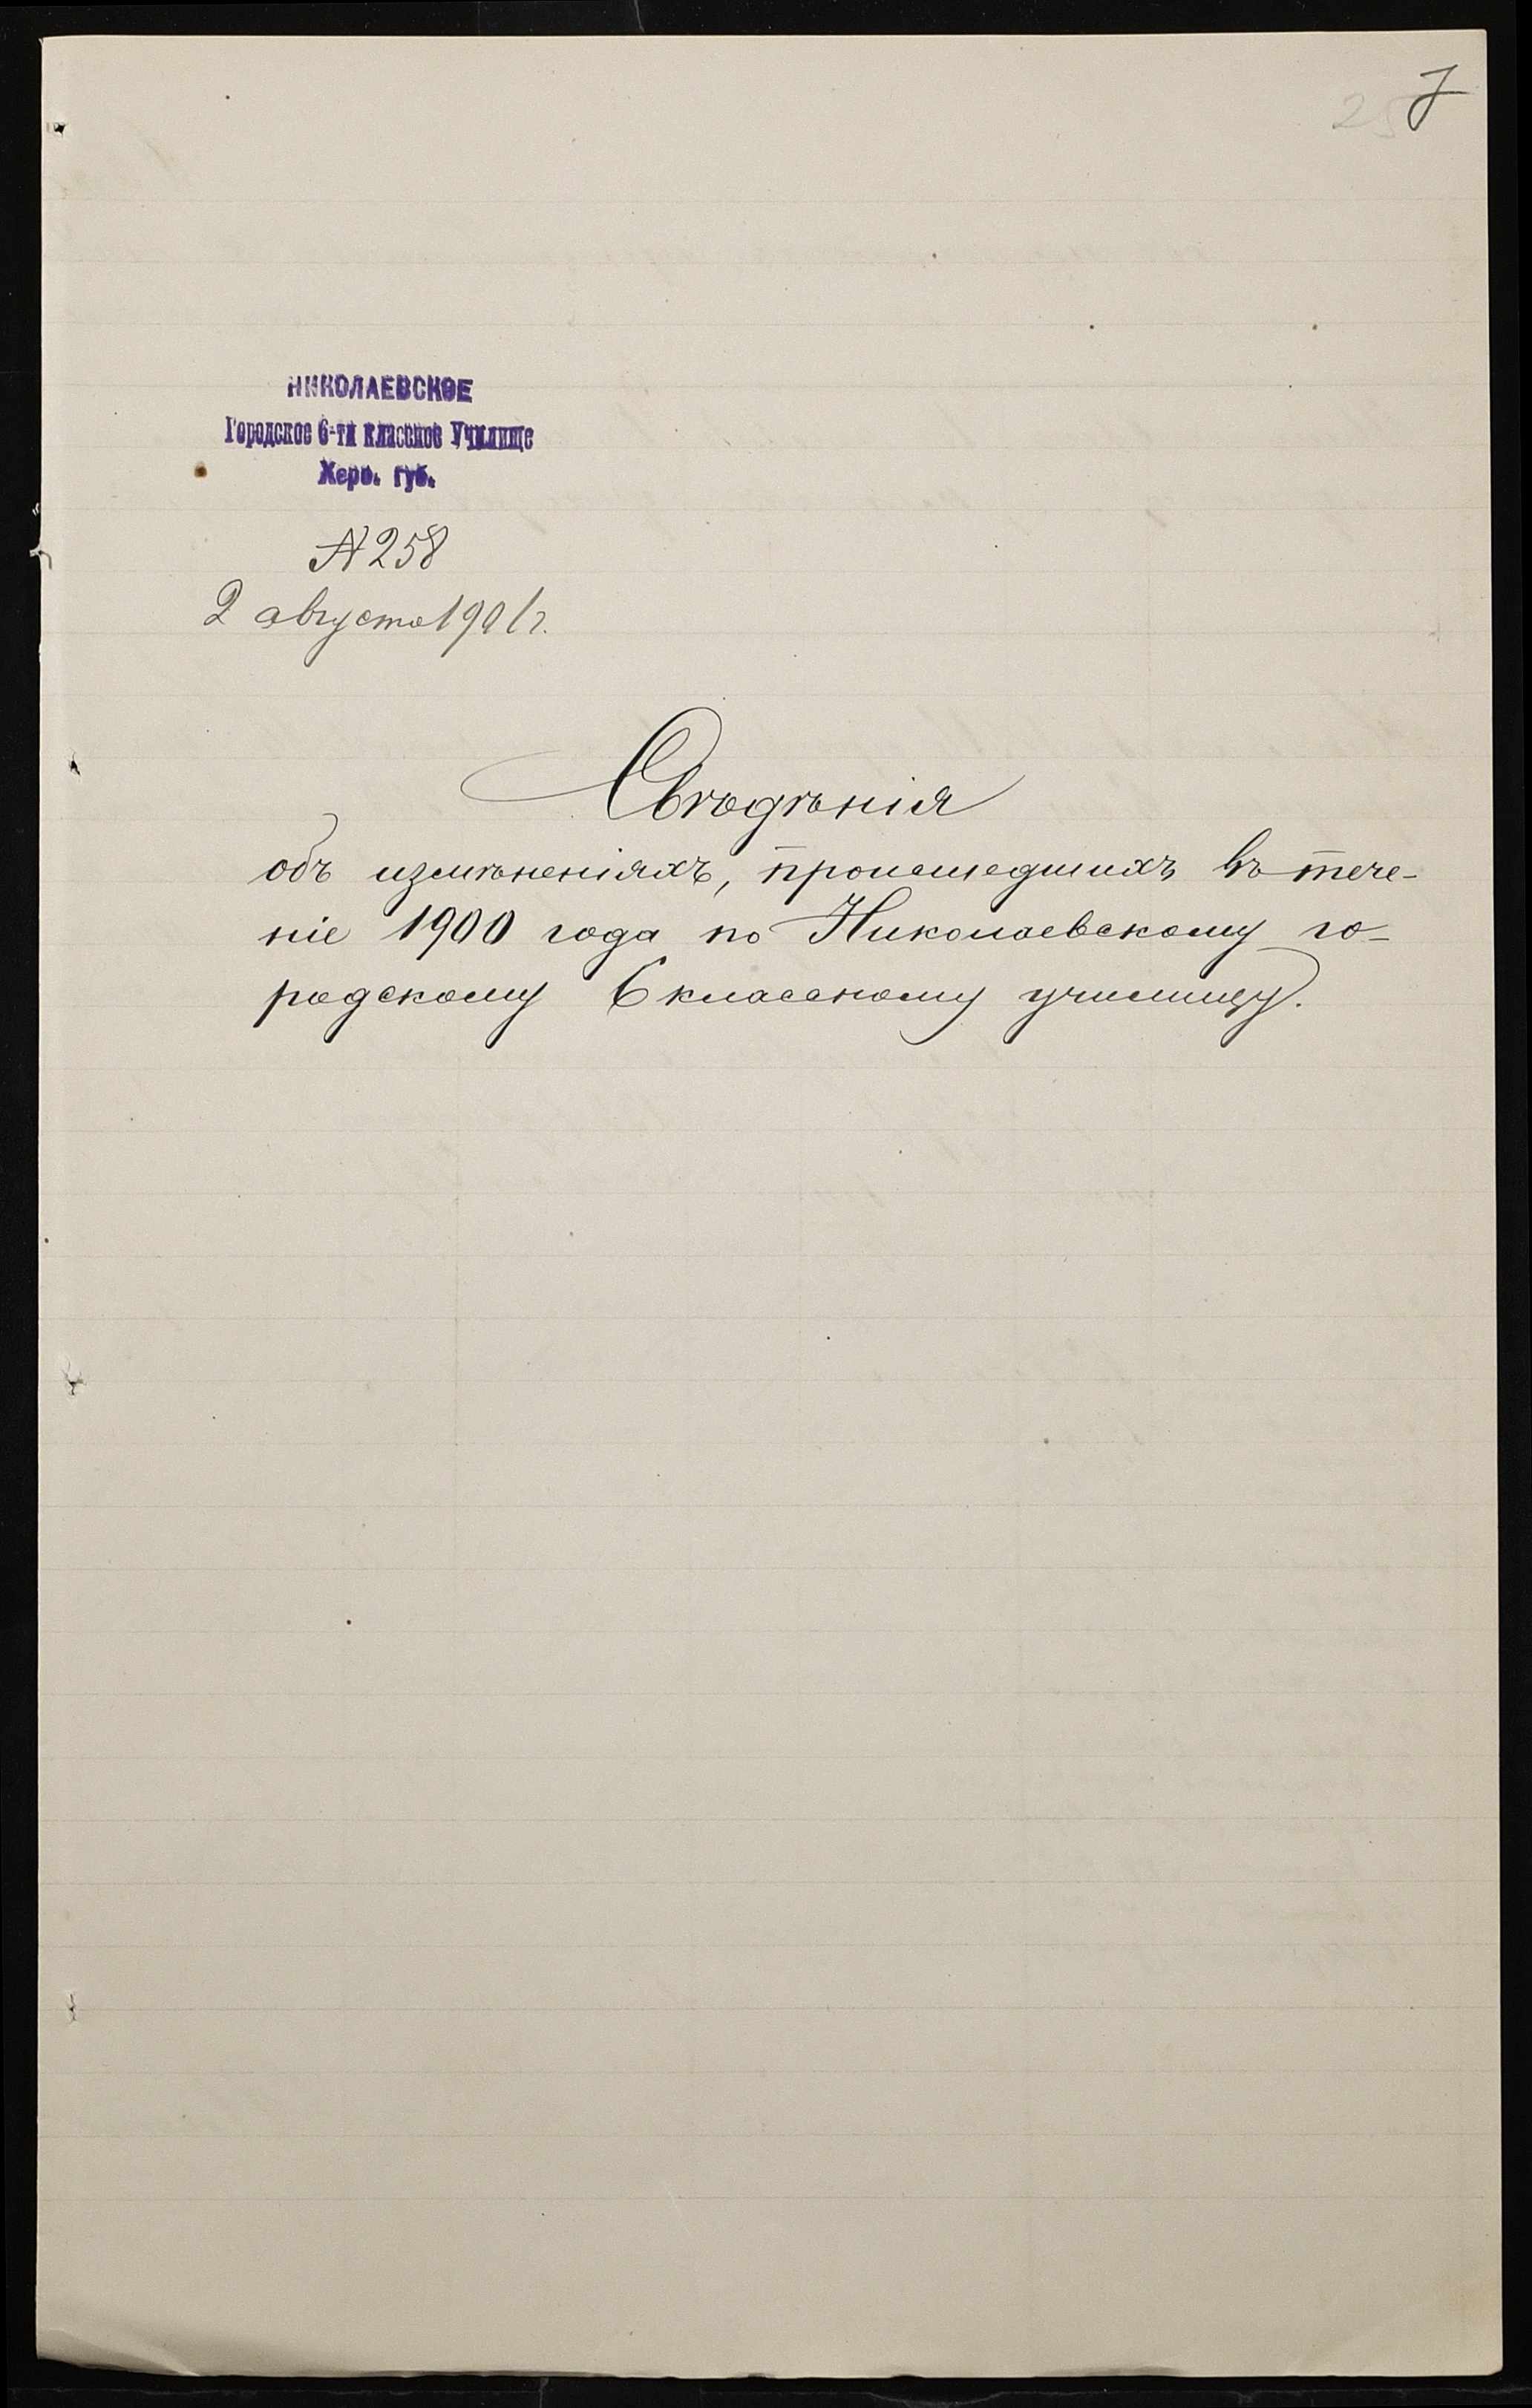 7
25
НИКОЛАЕВСКОЕ
Городское 6-ти классное Училище
Херс. губ.
№ 258
2 августа 1901 г.
Свѣдѣнія
объ измѣненіяхъ, происшедшихъ въ тече-
ніе 1900 года по Николаевскому го-
родскому 6 классному училищу.